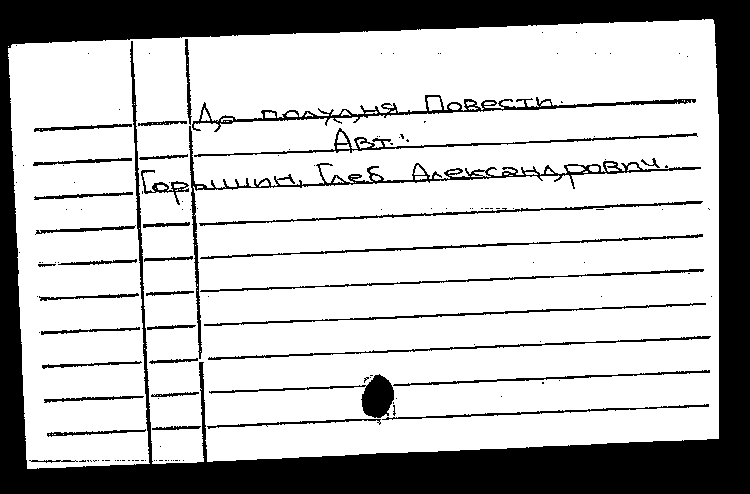 До полудня. Повести.
Авт.:
Горышин, Глеб Александрович.